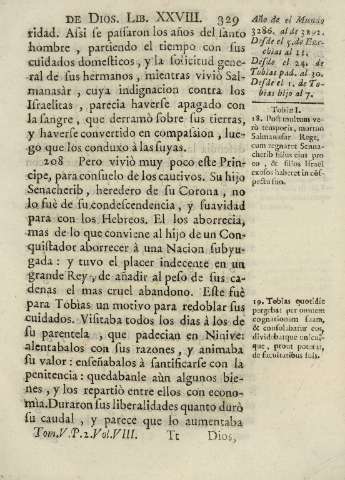 DE DIOS. LIB. XXVIII. 329
ridad. Assi se passaron los años del santo
hombre, partiendo el tiempo con sus
cuidados domesticos, y la solicitud gene-
ral de sus hermanos, mientras vivió Sal-
manasàr, cuya indignacion contra los
Israelitas, parecia haverse apagado con
la sangre, que derramò sobre sus tierras,
y haverse convertido en compassion, lue-
go que los conduxo à las suyas.
208 Pero vivió muy poco este Prin-
cipe, para consuelo de los cautivos. Su hijo
Senacherib, heredero de su Corona, no
lo fuè de su condescendencia, y suavidad
para con los Hebreos. El los aborrecia,
mas de lo que conviene al hijo de un Con-
quistador aborrecer à una Nacion subyu-
gada: y tuvo el placer indecente en un
grande Rey, de añadir al peso de sus ca-
denas el mas cruel abandono. Este fuè
para Tobias un motivo para redoblar sus
cuidados. Visitaba todos los dias à los de
su parentela, que padecian en Ninive:
alentabalos con sus razones, y animaba
su valor: enseñabalos à santificarse con la
penitencia: quedabanle aùn algunos bie-
nes, y los repartiò entre ellos con econo-
mìa. Duraron sus liberalidades quanto durò
su caudal, y parece que lo aumentaba
Tom.V.P.2.Vol.VIII. Tt Dios,
Año de el Mundo
3286. al de 3802.
Desde el 5. de Eze-
chias al 11.
Desde el 24. de
Tobias pad. al 30.
Desde el 1. de To-
bias hijo al 7.
Tobiæ I.
18. Post multum ve-
rò temporis, mortuo
Salmanasar Rege,
cum regnaret Senna-
cherib filius ejus pro
eo, & filios Israel
exosos haberet in cōs-
pectu suo.
19. Tobias quotidie
pergebat per omnem
cognationem suam,
& consolabatur eos,
dividebatque unicui-
que, prout poterat,
de facultatibus suis.